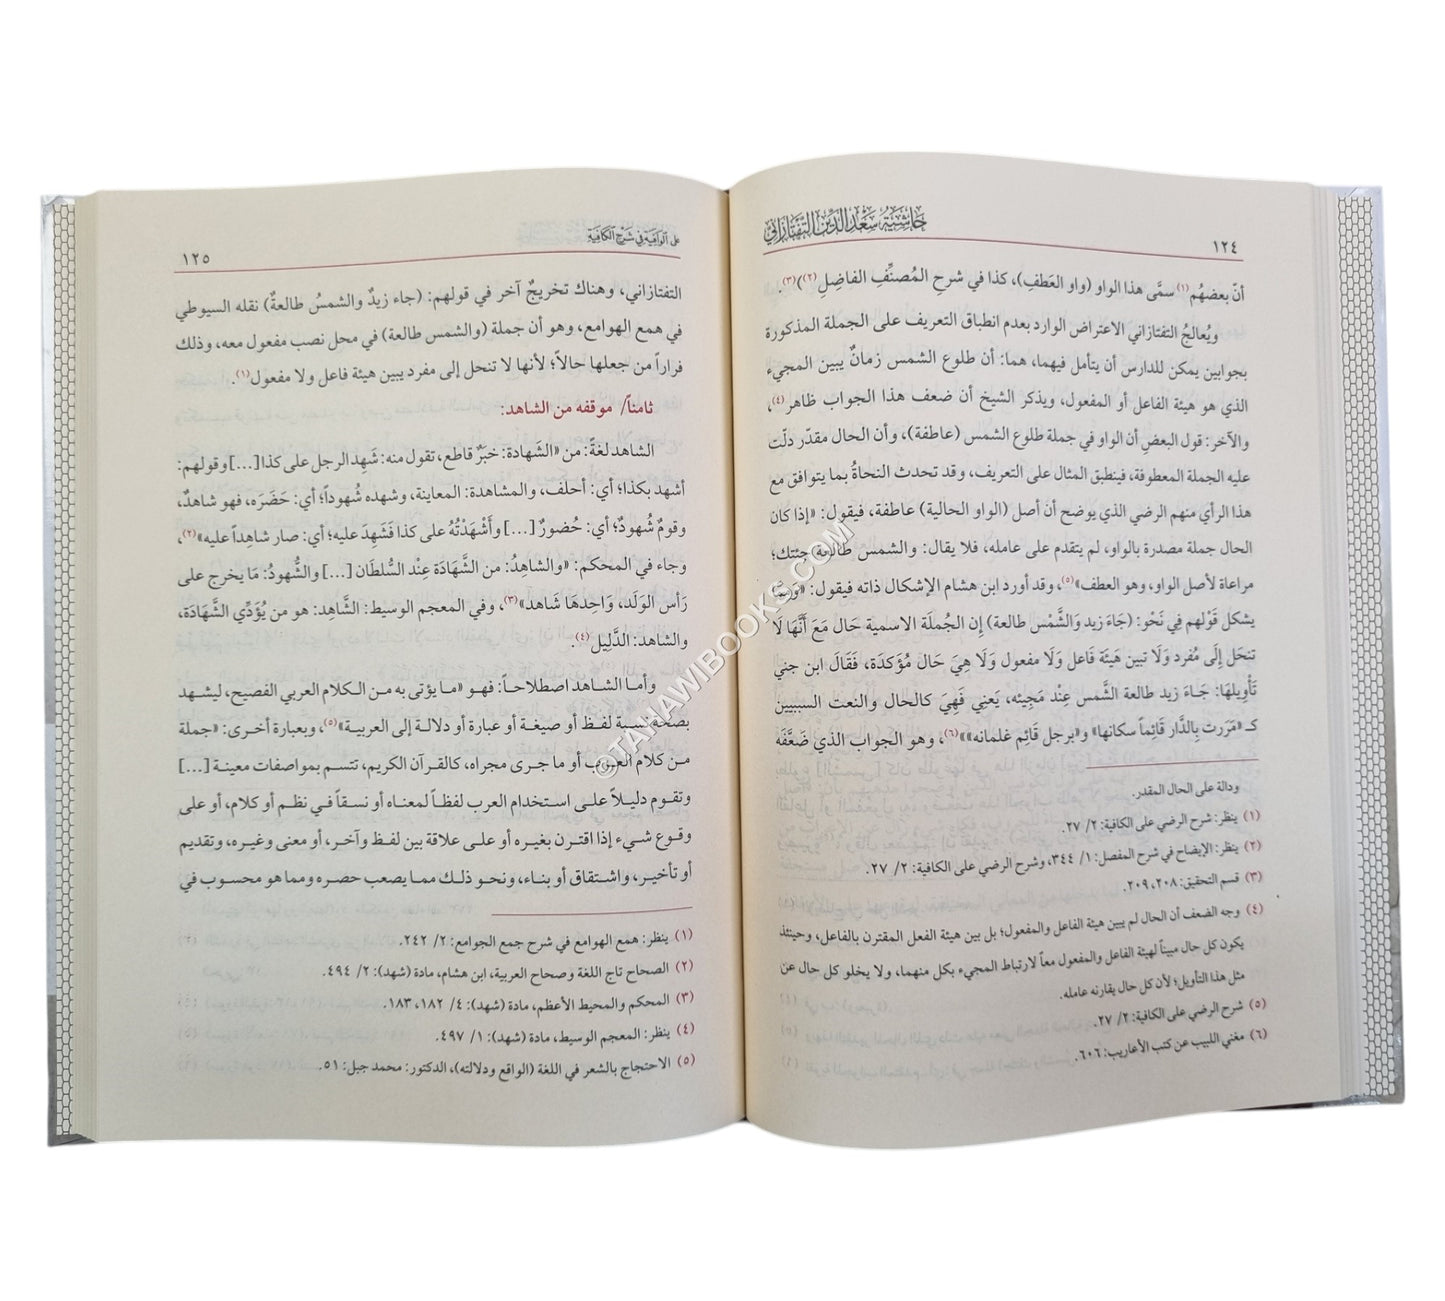 حاشية سعد الدين التفتازاني
١٢٤
أنّ بعضهُم(١) سمَّى هذا الواو (واو العَطفِ)، كذا في شرحِ المُصنِّفِ الفاضِلِ(٢))(٣).
ويُعالجُ التفتازاني الاعتراض الوارد بعدم انطباق التعريف على الجملة المذكورة
بجوابين يمكن للدارس أن يتأمل فيهما، هما: أن طلوع الشمس زمانٌ يبين المجيء
الذي هو هيئة الفاعل أو المفعول، ويذكر الشيخ أن ضعف هذا الجواب ظاهر(٤)،
والآخر: قول البعض أن الواو في جملة طلوع الشمس (عاطفة)، وأن الحال مقدّر دلّت
عليه الجملة المعطوفة، فينطبق المثال على التعريف، وقد تحدث النحاةُ بما يتوافق مع
هذا الرأي منهم الرضي الذي يوضح أن أصل (الواو الحالية) عاطفة، فيقول: «إذا كان
الحال جملة مصدرة بالواو، لم يتقدم على عامله، فلا يقال: والشمس طالعة جئتك؛
مراعاة لأصل الواو، وهو العطف»(٥)، وقد أورد ابن هشام الإشكال ذاته فيقول: «وَمِمَّا
يشكل قَوْلهم فِي نَحْو: (جَاءَ زيد وَالشَّمْس طالعة) إن الجُملَة الاسمية حَال مَعَ أَنَّهَا لَا
تنحَل إِلَى مُفرد وَلَا تبين هَيئَة فَاعل وَلَا مفعول وَلَا هِيَ حَال مُؤَكدَة، فَقَالَ ابن جني
تَأْوِيلهَا: جَاءَ زيد طالعة الشَّمْس عِنْد مَجِيئه، يَعنِي فَهِيَ كالحال والنعت السببيين
كـ «مَرَرت بِالدَّار قَائِماً سكانها» و«برجل قَائِم غلمانه»»(٦)، وهو الجواب الذي ضَعَّفَه
ودالة على الحال المقدر.
(١) ينظر: شرح الرضي على الكافية: ٢/ ٢٧.
(٢) ينظر: الإيضاح في شرح المفصل: ١/ ٣٤٤، وشرح الرضي على الكافية: ٢/ ٢٧.
(٣) قسم التحقيق: ٢٠٨، ٢٠٩.
(٤) وجه الضعف أن الحال لم يبين هيئة الفاعل والمفعول؛ بل بين هيئة الفعل المقترن بالفاعل، وحينئذ
يكون كل حال مبيناً لهيئة الفاعل والمفعول معاً لارتباط المجيء بكل منهما، ولا يخلو كل حال عن
مثل هذا التأويل؛ لأن كل حال يقارنه عامله.
(٥) شرح الرضي على الكافية: ٢/ ٢٧.
(٦) مغني اللبيب عن كتب الأعاريب: ٦٠٦.
على الوافية في شرح الكافية
١٢٥
التفتازاني، وهناك تخريجٌ آخر في قولهم: (جاء زيدٌ والشمسُ طالعةٌ) نقله السيوطي
في همع الهوامع، وهو أن جملة (والشمس طالعة) في محل نصب مفعول معه، وذلك
فراراً من جعلها حالاً؛ لأنها لا تنحل إلى مفرد يبين هيئة فاعل ولا مفعول(١).
ثامناً/ موقفه من الشاهد:
الشاهد لغةً: من «الشَهادة: خبَرٌ قاطع، تقول منه: شَهِد الرجل على كذا [...] وقولهم:
أشهد بكذا؛ أي: أحلف، والمشاهدة: المعاينة، وشهده شُهوداً؛ أي: حَضَرَه، فهو شاهدٌ،
وقومٌ شُهودٌ؛ أي: حُضورٌ [...] وأَشْهَدْتُهُ على كذا فَشَهِدَ عليه؛ أي: صار شاهِداً عليه»(٢)،
وجاء في المحكم: «والشاهِدُ: من الشَّهَادَة عِنْد السُّلطَان [...] والشُّهودُ: مَا يخرج على
رَأس الوَلَد، وَاحِدهَا شَاهد»(٣)، وفي المعجم الوسيط: الشَّاهِد: هو من يُؤَدِّي الشَّهَادَة،
والشاهد: الدَّلِيل(٤).
وأما الشاهد اصطلاحاً: فهو «ما يؤتى به من الكلام العربي الفصيح، ليشهد
بصحة نسبة لفظ أو صيغة أو عبارة أو دلالة إلى العربية»(٥)، وبعبارة أخرى: «جملة
من كلام العرب أو ما جرى مجراه، كالقرآن الكريم، تتسم بمواصفات معينة [...]
وتقوم دليلاً على استخدام العرب لفظاً لمعناه أو نسقاً في نظم أو كلام، أو على
وقوع شيء إذا اقترن بغيره أو على علاقة بين لفظ وآخر، أو معنى وغيره، وتقديم
أو تأخير، واشتقاق أو بناء، ونحو ذلك مما يصعب حصره ومما هو محسوب في
(١) ينظر: همع الهوامع في شرح جمع الجوامع: ٢/ ٢٤٢.
(٢) الصحاح تاج اللغة وصحاح العربية، ابن هشام، مادة (شهد): ٢/ ٤٩٤.
(٣) المحكم والمحيط الأعظم، مادة (شهد): ٤/ ١٨٢، ١٨٣.
(٤) ينظر: المعجم الوسيط، مادة (شهد): ١/ ٤٩٧.
(٥) الاحتجاج بالشعر في اللغة (الواقع ودلالته)، الدكتور: محمد جبل: ٥١.
©TAHAWIBOOKS.COM